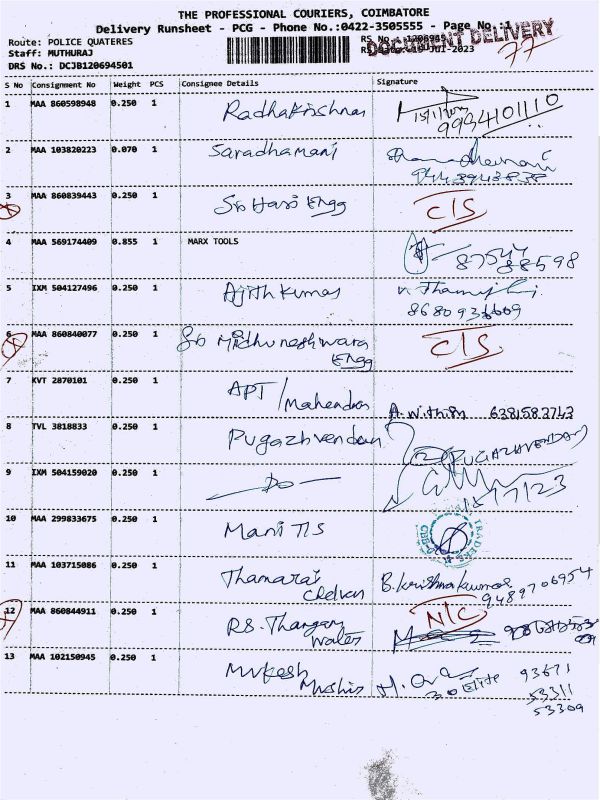 THE PROFESSIONAL COURIERS, COIMBATORE
Delivery Runsheet - PCG - Phone No.:0422-3505555 - Page No.:1
Route: POLICE QUATERES
Staff: MUTHURAJ
DRS No.: DCJB120694501
DOCUMENT DELIVERY
77
S No Consignment No Weight PCS Consignee Details Signature
1 MAA 860598948 0.250 1 Radhakrishnan
9994101110
2 MAA 103820223 0.070 1 Saradhamani
9443943838
3 MAA 860839443 0.250 1 Sri Hari Engg C/S
4 MAA 569174409 0.855 1 MARX TOOLS 87544
88598
5 IXM 504127496 0.250 1 Ajith Kumar
8680936609
6 MAA 860840077 0.250 1 Sri Madhuneshwara C/S
Engg
7 KVT 2870101 0.250 1 APT / Mahendran A. Within 6381582743
8 TVL 3818833 0.250 1 Pugazhvendan PUGAZHVENDAN
9 IXM 504159020 0.250 1 Do
17/23
10 MAA 299833675 0.250 1 Mani T/S TRADERS
11 MAA 103715086 0.250 1 Thamarai B. Krishnakumar
Chelvan 9489706954
12 MAA 860844911 0.250 1 R.S. Thangam N/C
Water
13 MAA 102150945 0.250 1 Mukesh 93671
Elite 53311
53309